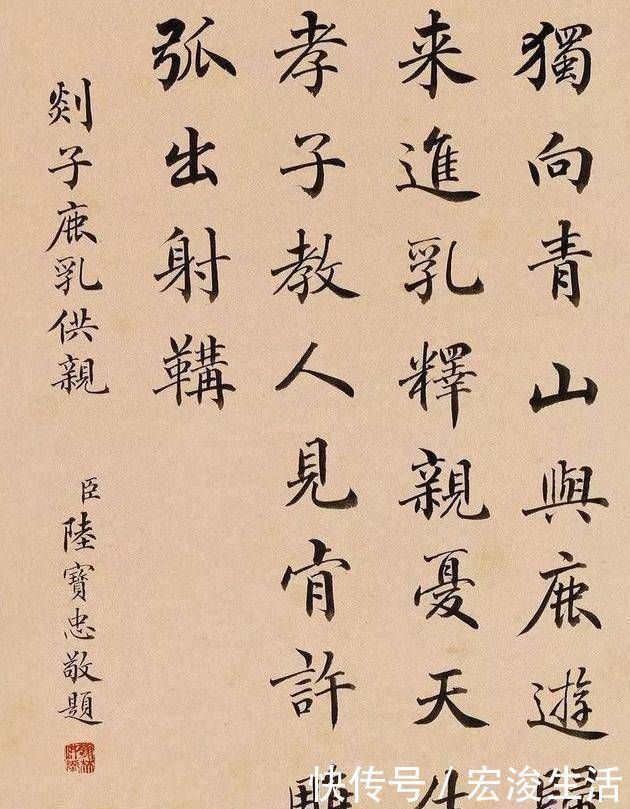 獨向青山與鹿遊
来進乳釋親憂天
孝子教人見肯許
弧出射鞲
剡子鹿乳供親
臣陸寶忠敬題
快传号 / 宏浚生活